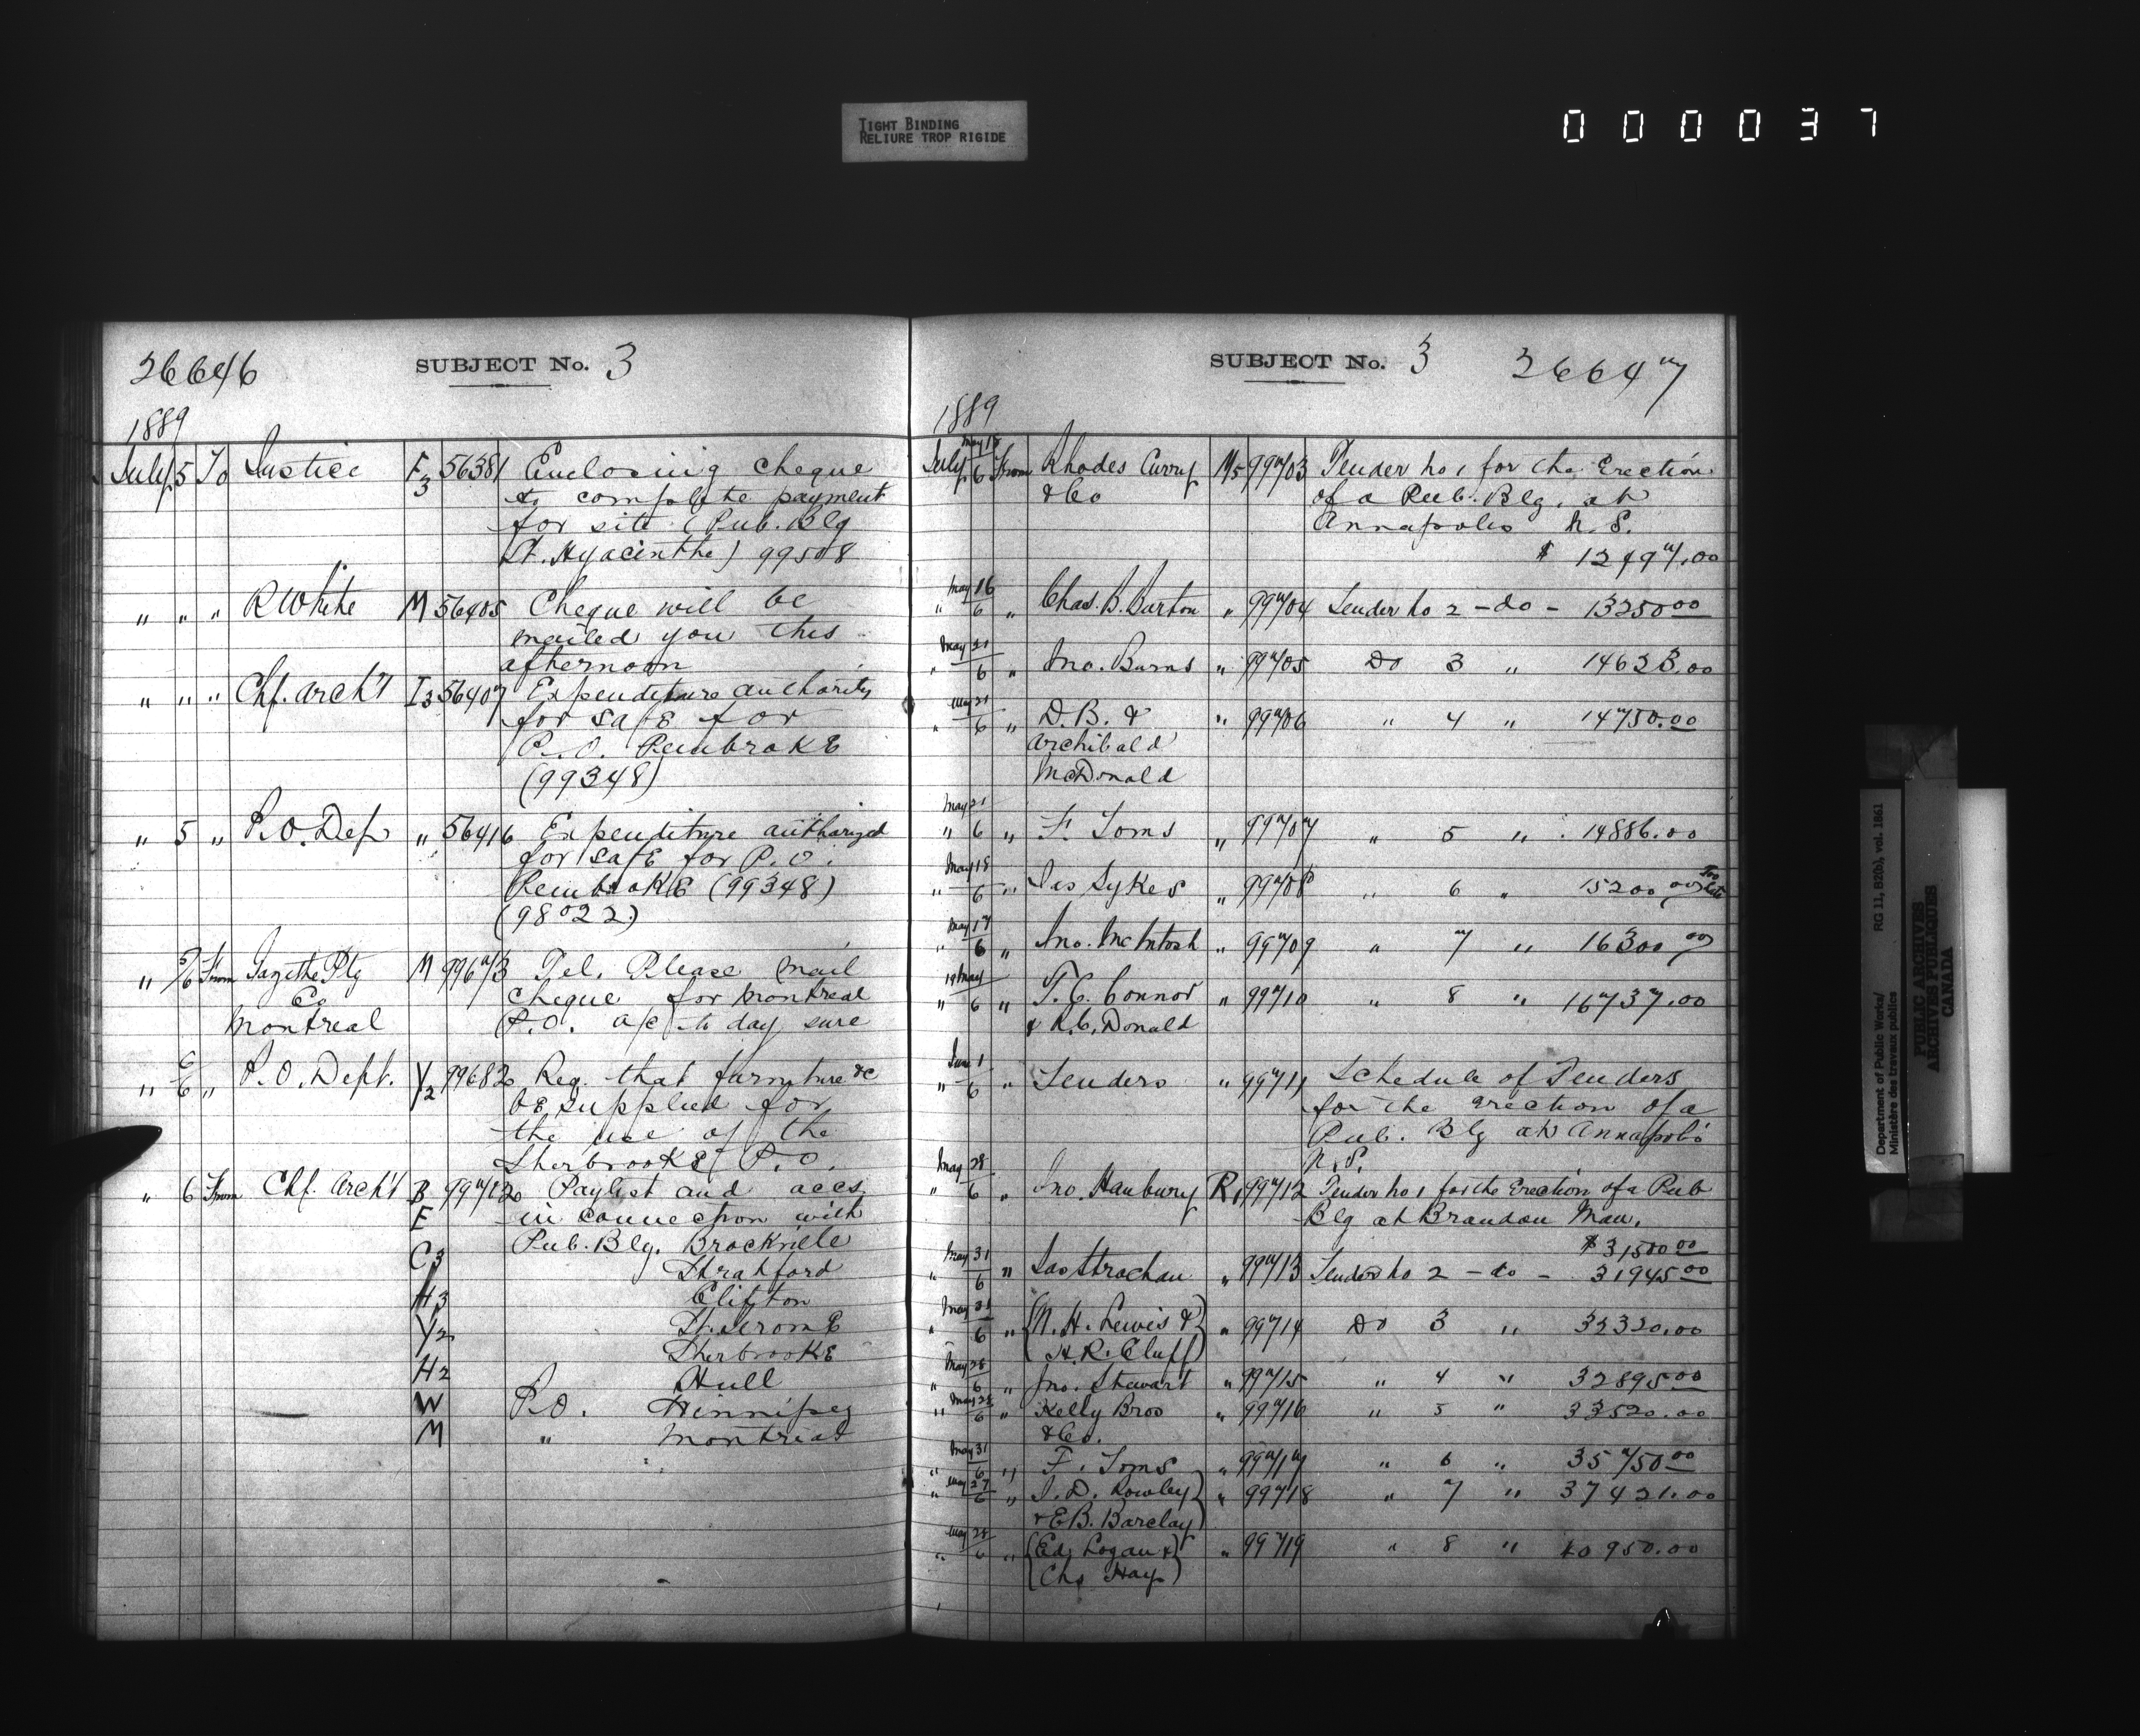 TIGHT BINDING
RELIURE TROP RIGIDE
000037
26646 SUBJECT No. 3
1889
July 5 To Justice F3 56381 Enclosing cheque
to complete payment
for site (Pub. Blg
St. Hyacinthe) 99508
" " " R White M 56405 Cheque will be
mailed you this
afternoon
" " " Chf. Arch't I3 56407 Expenditure authority
for safe for
P.O. Pembroke
(99348)
" 5 " P.O. Dep " 56416 Expenditure authorized
for safe for P.O.
Pembroke (99348)
(98022)
" 5/6 From Gazette Ptg M 99673 Tel. Please mail
Co cheque for Montreal
Montreal P.O. a/c to day sure
" 6/6 " P.O. Dept. Y2 99682 Req. that furniture &c
be supplied for
the use of the
Sherbrooke P.O.
" 6 From Chf. Arch't B 99712 Paylist and accs.
F in connection with
Pub. Blg. Brockville
C3 Stratford
H3 Clifton
Y2 St. Jerome
Sherbrooke
H2 Hull
W P.O. Winnipeg
M " Montreal
SUBJECT No. 3 26647
1889
May 15
July 6 From Rhodes Curry M5 99703 Tender No 1 for the Erection
& Co of a Pub. Blg. at
Annapolis N.S.
$ 12497.00
May 16
" 6 " Chas. B. Burton " 99704 Tender No 2 - do - 13250 00
May 21
" 6 " Jno. Burns " 99705 Do 3 " 14623.00
May 21
" 6 " D.B. & " 99706 " 4 " 14750.00
Archibald
McDonald
May 21
" 6 " F. Toms " 99707 " 5 " 14886.00
May 18
" 6 " Jas Sykes " 99708 " 6 " 15200 00 Too late
May 17
" 6 " Jno. McIntosh " 99709 " 7 " 16300 00
19 May
" 6 " T.C. Connor " 99710 " 8 " 16737.00
& R.C. Donald
June 1
" 6 " Tenders " 99711 Schedule of Tenders
for the erection of a
Pub. Blg at Annapolis
N.S.
May 28
" 6 " Jno. Hanbury R1 99712 Tender No 1 for the Erection of a Pub
Blg at Brandon Man.
$31500 00
May 31
" 6 " Jas Strachan " 99713 Tender No 2 - do - 31945 00
May 31
" 6 " (N. H. Lewis &) " 99714 Do 3 " 32320.00
(H.R. Cluff)
May 28
" 6 " Jno. Stewart " 99715 " 4 " 32895 00
May 28
" 6 " Kelly Bros " 99716 " 5 " 33520.00
& Co.
May 31
" 6 " F. Toms " 99717 " 6 " 35750 00
May 27
" 6 " J. D. Rowley) " 99718 " 7 " 37421.00
& E B. Barclay)
May 28
" 6 " (Ed. Logan &) " 99719 " 8 " 40950.00
(Chs Hay)
Department of Public Works/
Ministère des travaux publics
RG 11, B2(b), vol. 1861
PUBLIC ARCHIVES
ARCHIVES PUBLIQUES
CANADA